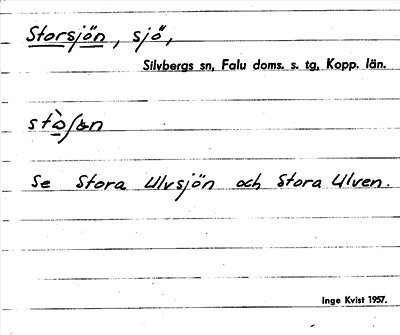 Storsjön, sjö,
Silvbergs sn, Falu doms. s. tg, Kopp. län.
Se Stora Ulvsjön och Stora Ulven.
Inge Kvist 1957.